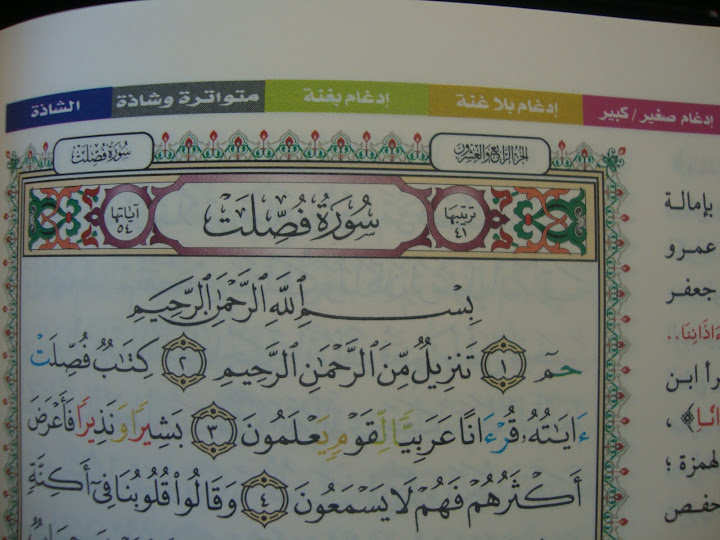 إدغام صغير / كبير
إدغام بلا غنة
إدغام بغنة
متواترة وشاذة
الشاذة
الجزء الرابع والعشرون
سورة فصلت
ترتيبها
٤١
سُورَةُ فُصِّلَتْ
آياتها
٥٤
بِسْمِ ٱللَّهِ ٱلرَّحْمَٰنِ ٱلرَّحِيمِ
حمٓ ١ تَنزِيلٌ مِّنَ ٱلرَّحْمَٰنِ ٱلرَّحِيمِ ٢ كِتَٰبٌ فُصِّلَتْ
ءَايَٰتُهُۥ قُرْءَانًا عَرَبِيًّا لِّقَوْمٍ يَعْلَمُونَ ٣ بَشِيرًا وَنَذِيرًا فَأَعْرَضَ
أَكْثَرُهُمْ فَهُمْ لَا يَسْمَعُونَ ٤ وَقَالُوا۟ قُلُوبُنَا فِىٓ أَكِنَّةٍ
بإمالة
عمرو
جعفر
ابن
لهمزة ؛
حفص